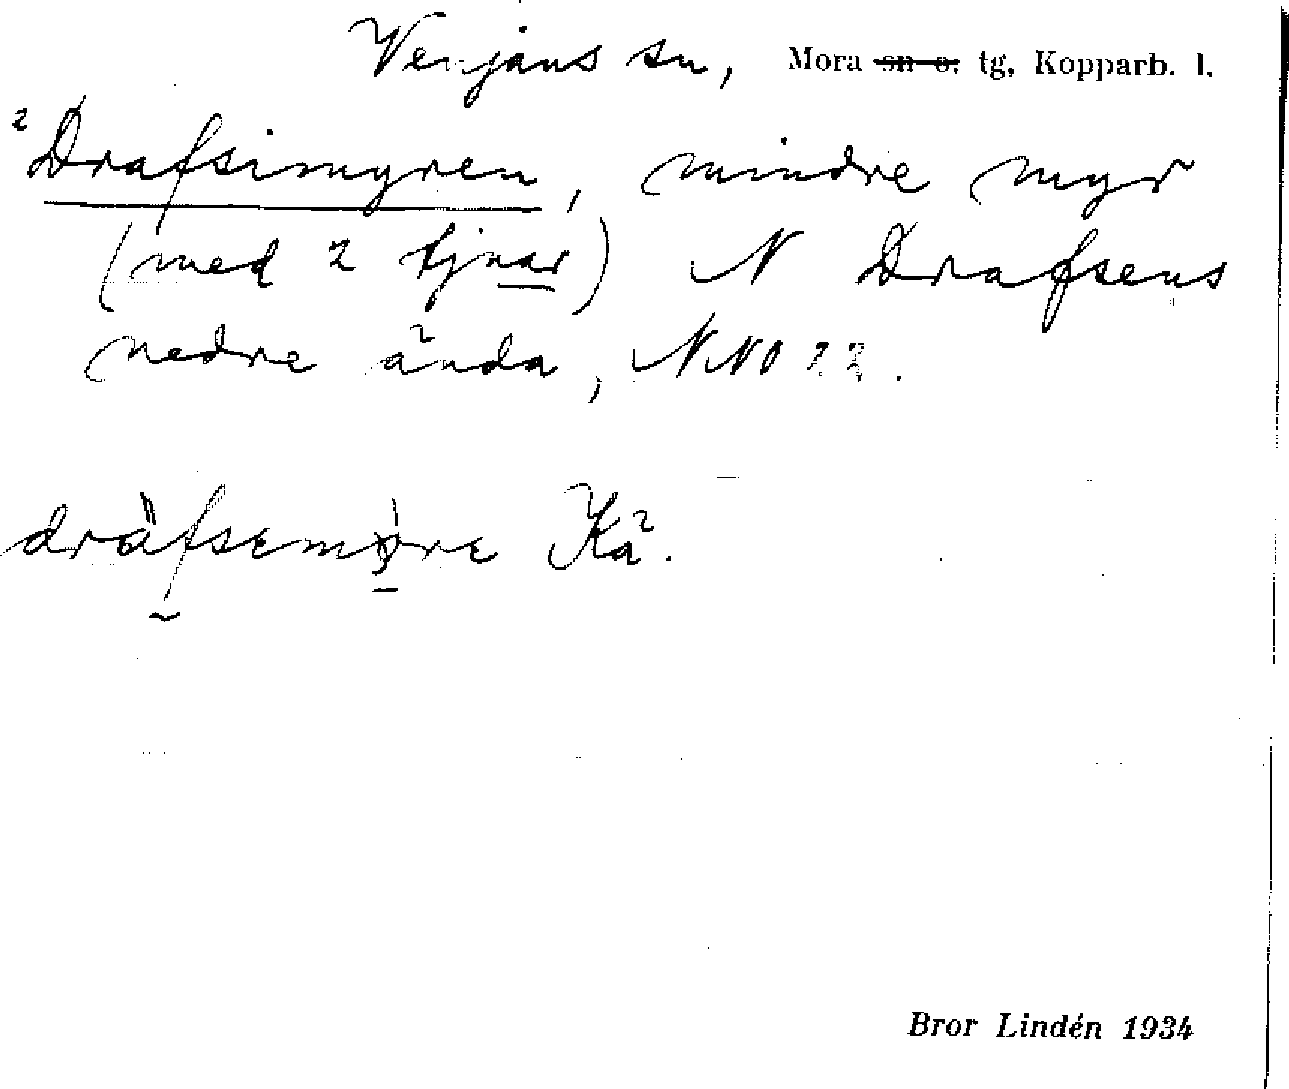 Venjans sn, Mora sn o. tg, Kopparb. l.
²Drafsimyren, mindre myr
(med 2 tjnar) N Drafsens
nedre ända, NNO 22.
dräfsemòre Kå.
Bror Lindén 1934